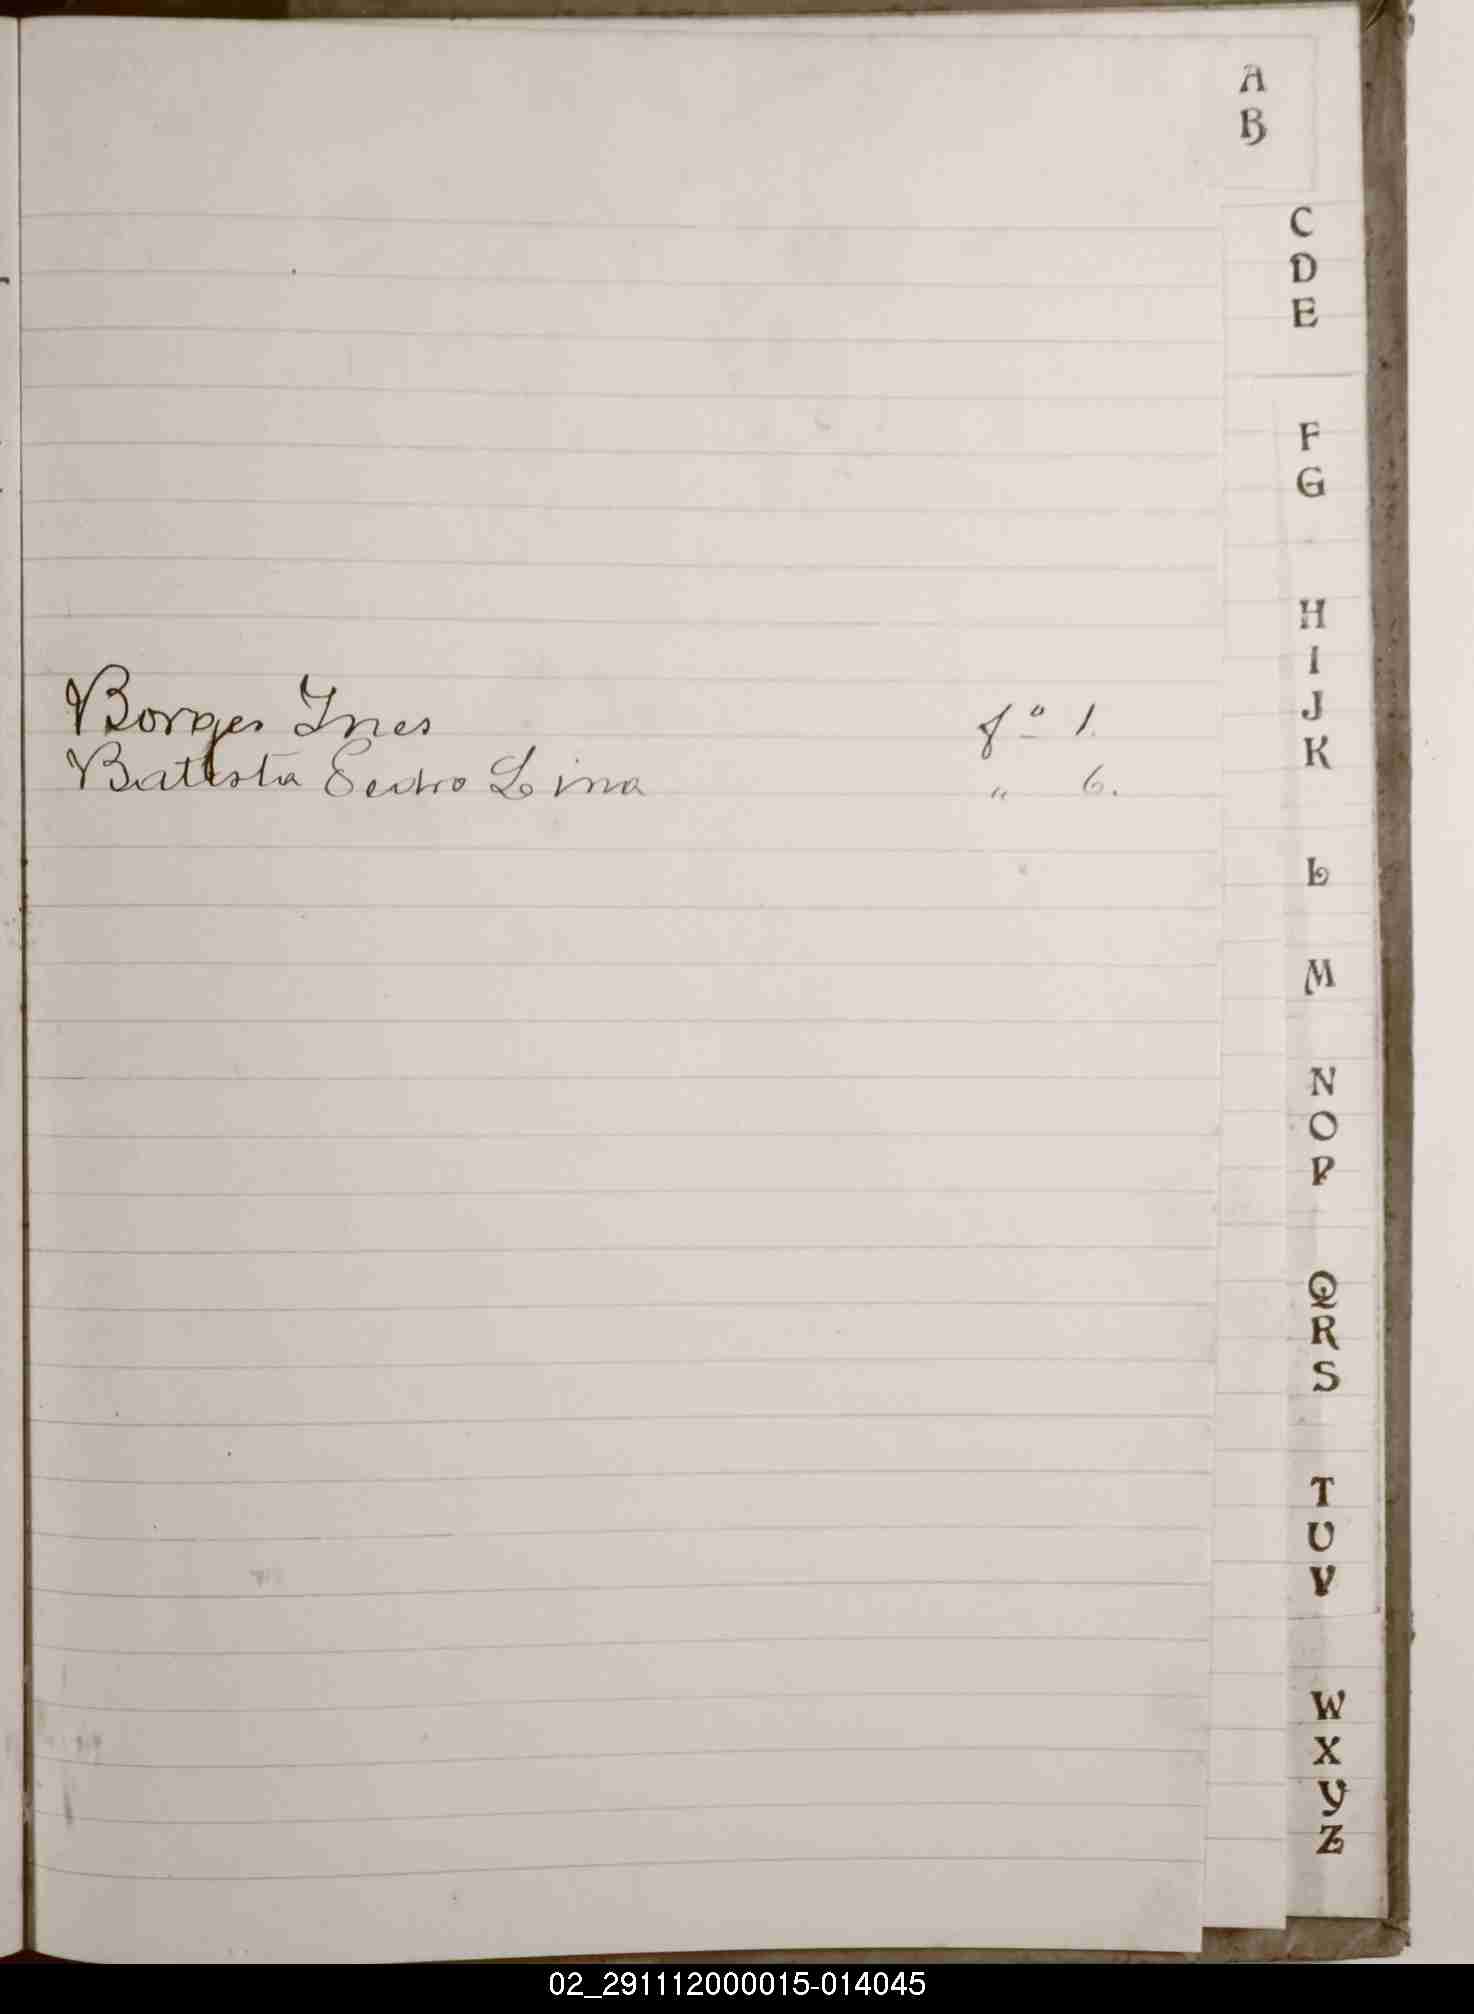 A
B
C
D
E
F
G
H
I
J
K
L
M
N
O
P
Q
R
S
T
U
V
W
X
Y
Z
Borges Ines fº 1.
Batista Pedro Lina " 6.
02_291112000015-014045